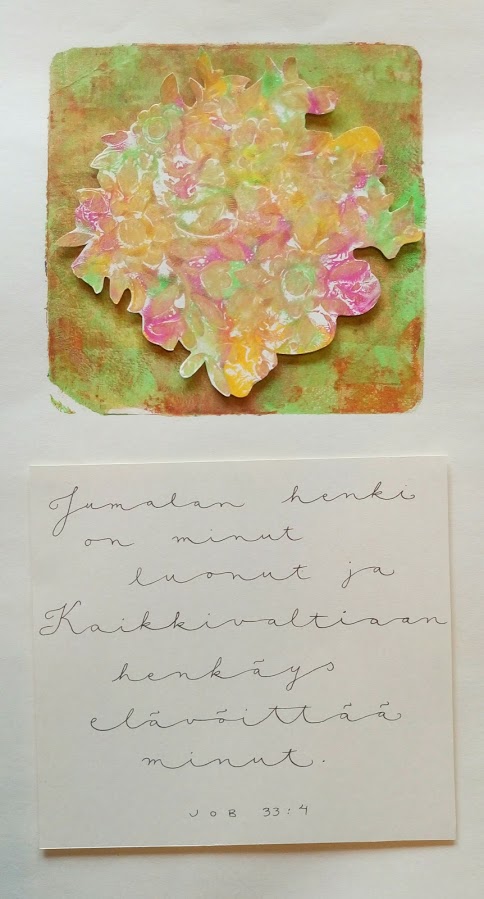 Jumalan henki
on minut
luonut ja
Kaikkivaltiaan
henkäys
elävöittää
minut.
JOB 33:4